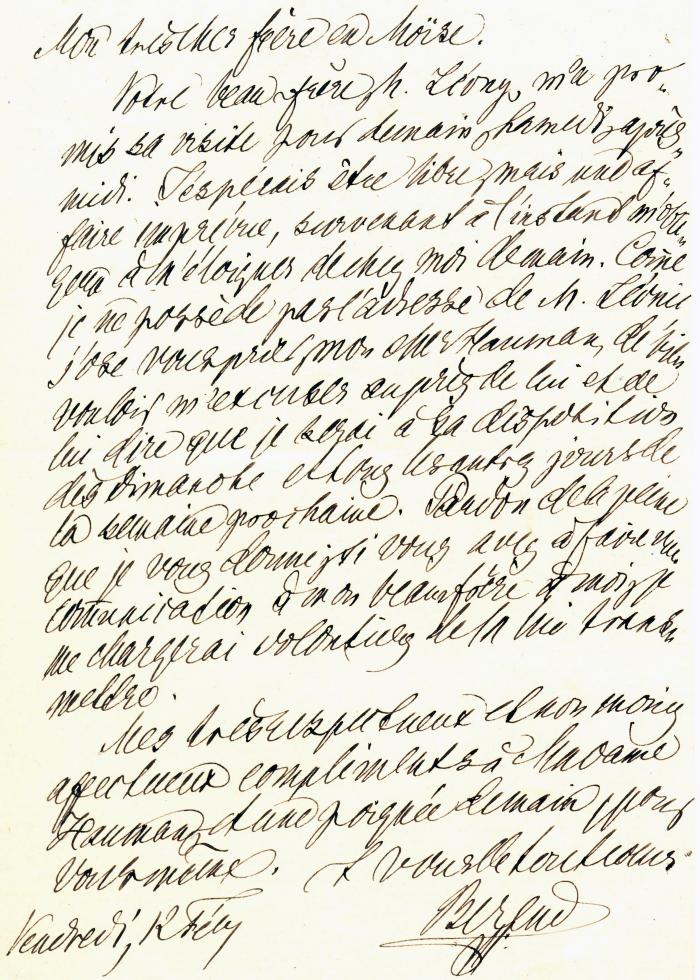 Mon très cher frère en Moïse.
Votre beau frère, M. Léony, m'a pro-
mis sa visite pour demain, samedi, après-
midi. J'espérais être libre, mais une af-
faire imprévue, survenant à l'instant m'obli-
gera à m'éloigner de chez moi demain. Come
je ne possède pas l'adresse de M. Léonie
j'ose vous prier, mon cher Hauman, de bien
vouloir m'excuser auprès de lui et de
lui dire que je serai à sa disposition
dès dimanche et tous les autres jours de
la semaine prochaine. Pardon de la peine
que je vous donne; si vous avez à faire une
comunication à mon beau frère à moi, je
me chargerai volontiers de la lui trans-
mettre.
Mes très respectueux et non moins
affectueux compliments à Madame
Hauman, et une poignée de main, pour
vous même. A vous de tout cœur.
Vendredi, 12 Fév